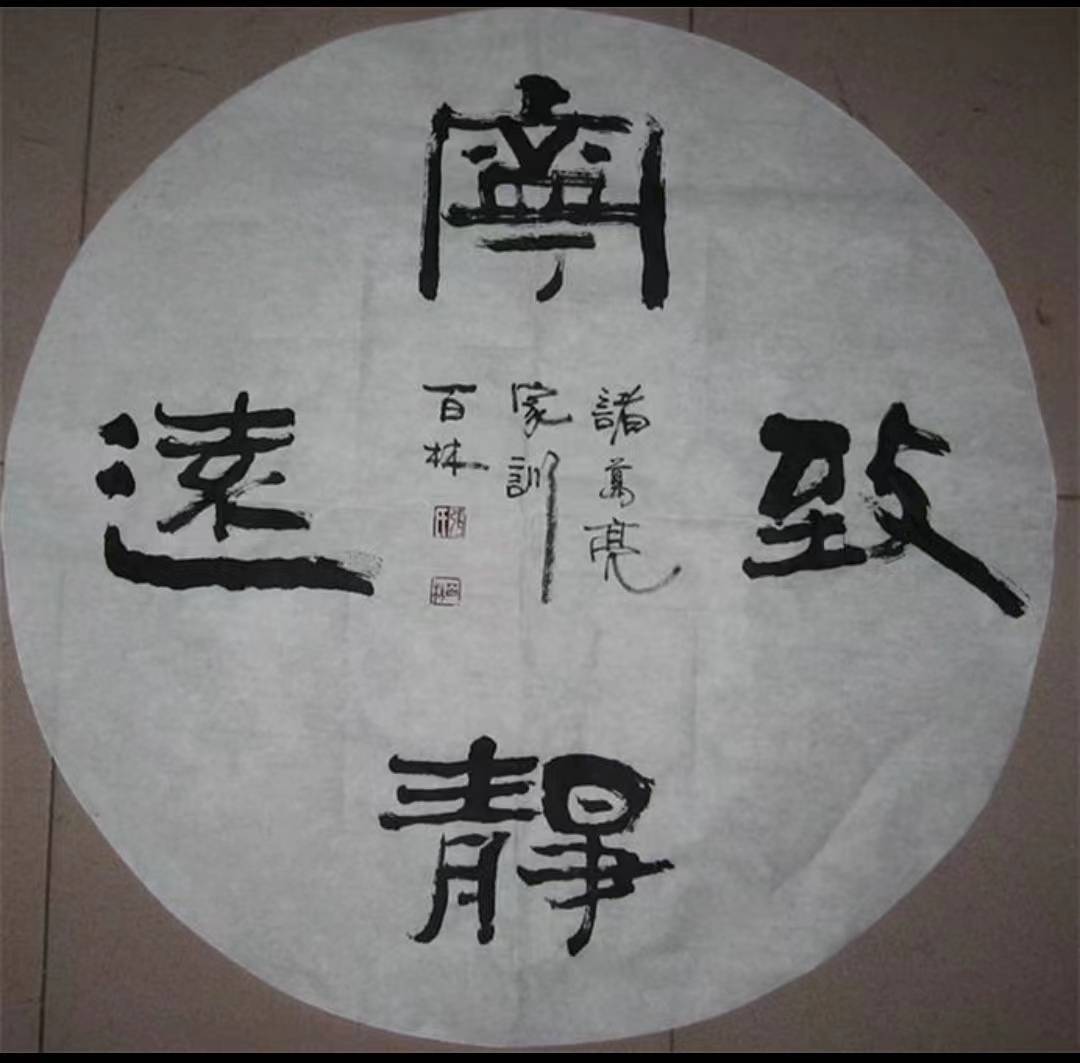 寧
靜
致
遠
諸葛亮
家訓
百林